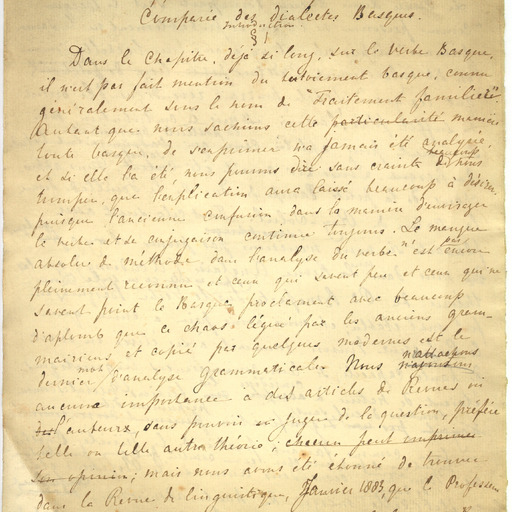 Comparée des dialectes Basques.
Introduction
§ 1
Dans le chapitre, déjà si long, sur le verbe Basque,
il n'est pas fait mention du tutoiement basque, connu
généralement sous le nom de "Traitement familier"
Autant que nous sachions cette particularité manière
toute basque, de s'exprimer n'a jamais été analysée,
et si elle l'a été, nous pouvons dire sans crainte de nous
tromper, que l'explication aura laissé beaucoup à désirer
puisque l'ancienne confusion dans la manière d'envisager
le verbe et sa conjugaison continue toujours. Le manque
absolu de méthode dans l'analyse du verbe n'est pas encore
pleinement reconnu et ceux qui savent peu et ceux qui ne
savent point le Basque proclament avec beaucoup
d'aplomb que ce chaos légué par les anciens gram-
mairiens et copié par quelques modernes est le
dernier mot d'analyse grammaticale. Nous n'attachons
aucune importance à des articles de Revues où
l'auteur, sans pouvoir juger de la question, préfère
telle ou telle autre théorie; chacun peut exprimer
son opinion; mais nous avons été étonné de trouver
dans la Revue de linguistique, Janvier 1883, que le Professeur